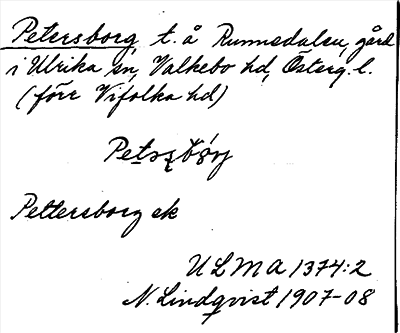 Petersborg, t. å Runnsdalen, gård
i Ulrika sn, Valkebo hd, Österg. l.
(förr Vifolka hd)
Pettersborg ek
ULMA 1374:2
N. Lindqvist 1907-08